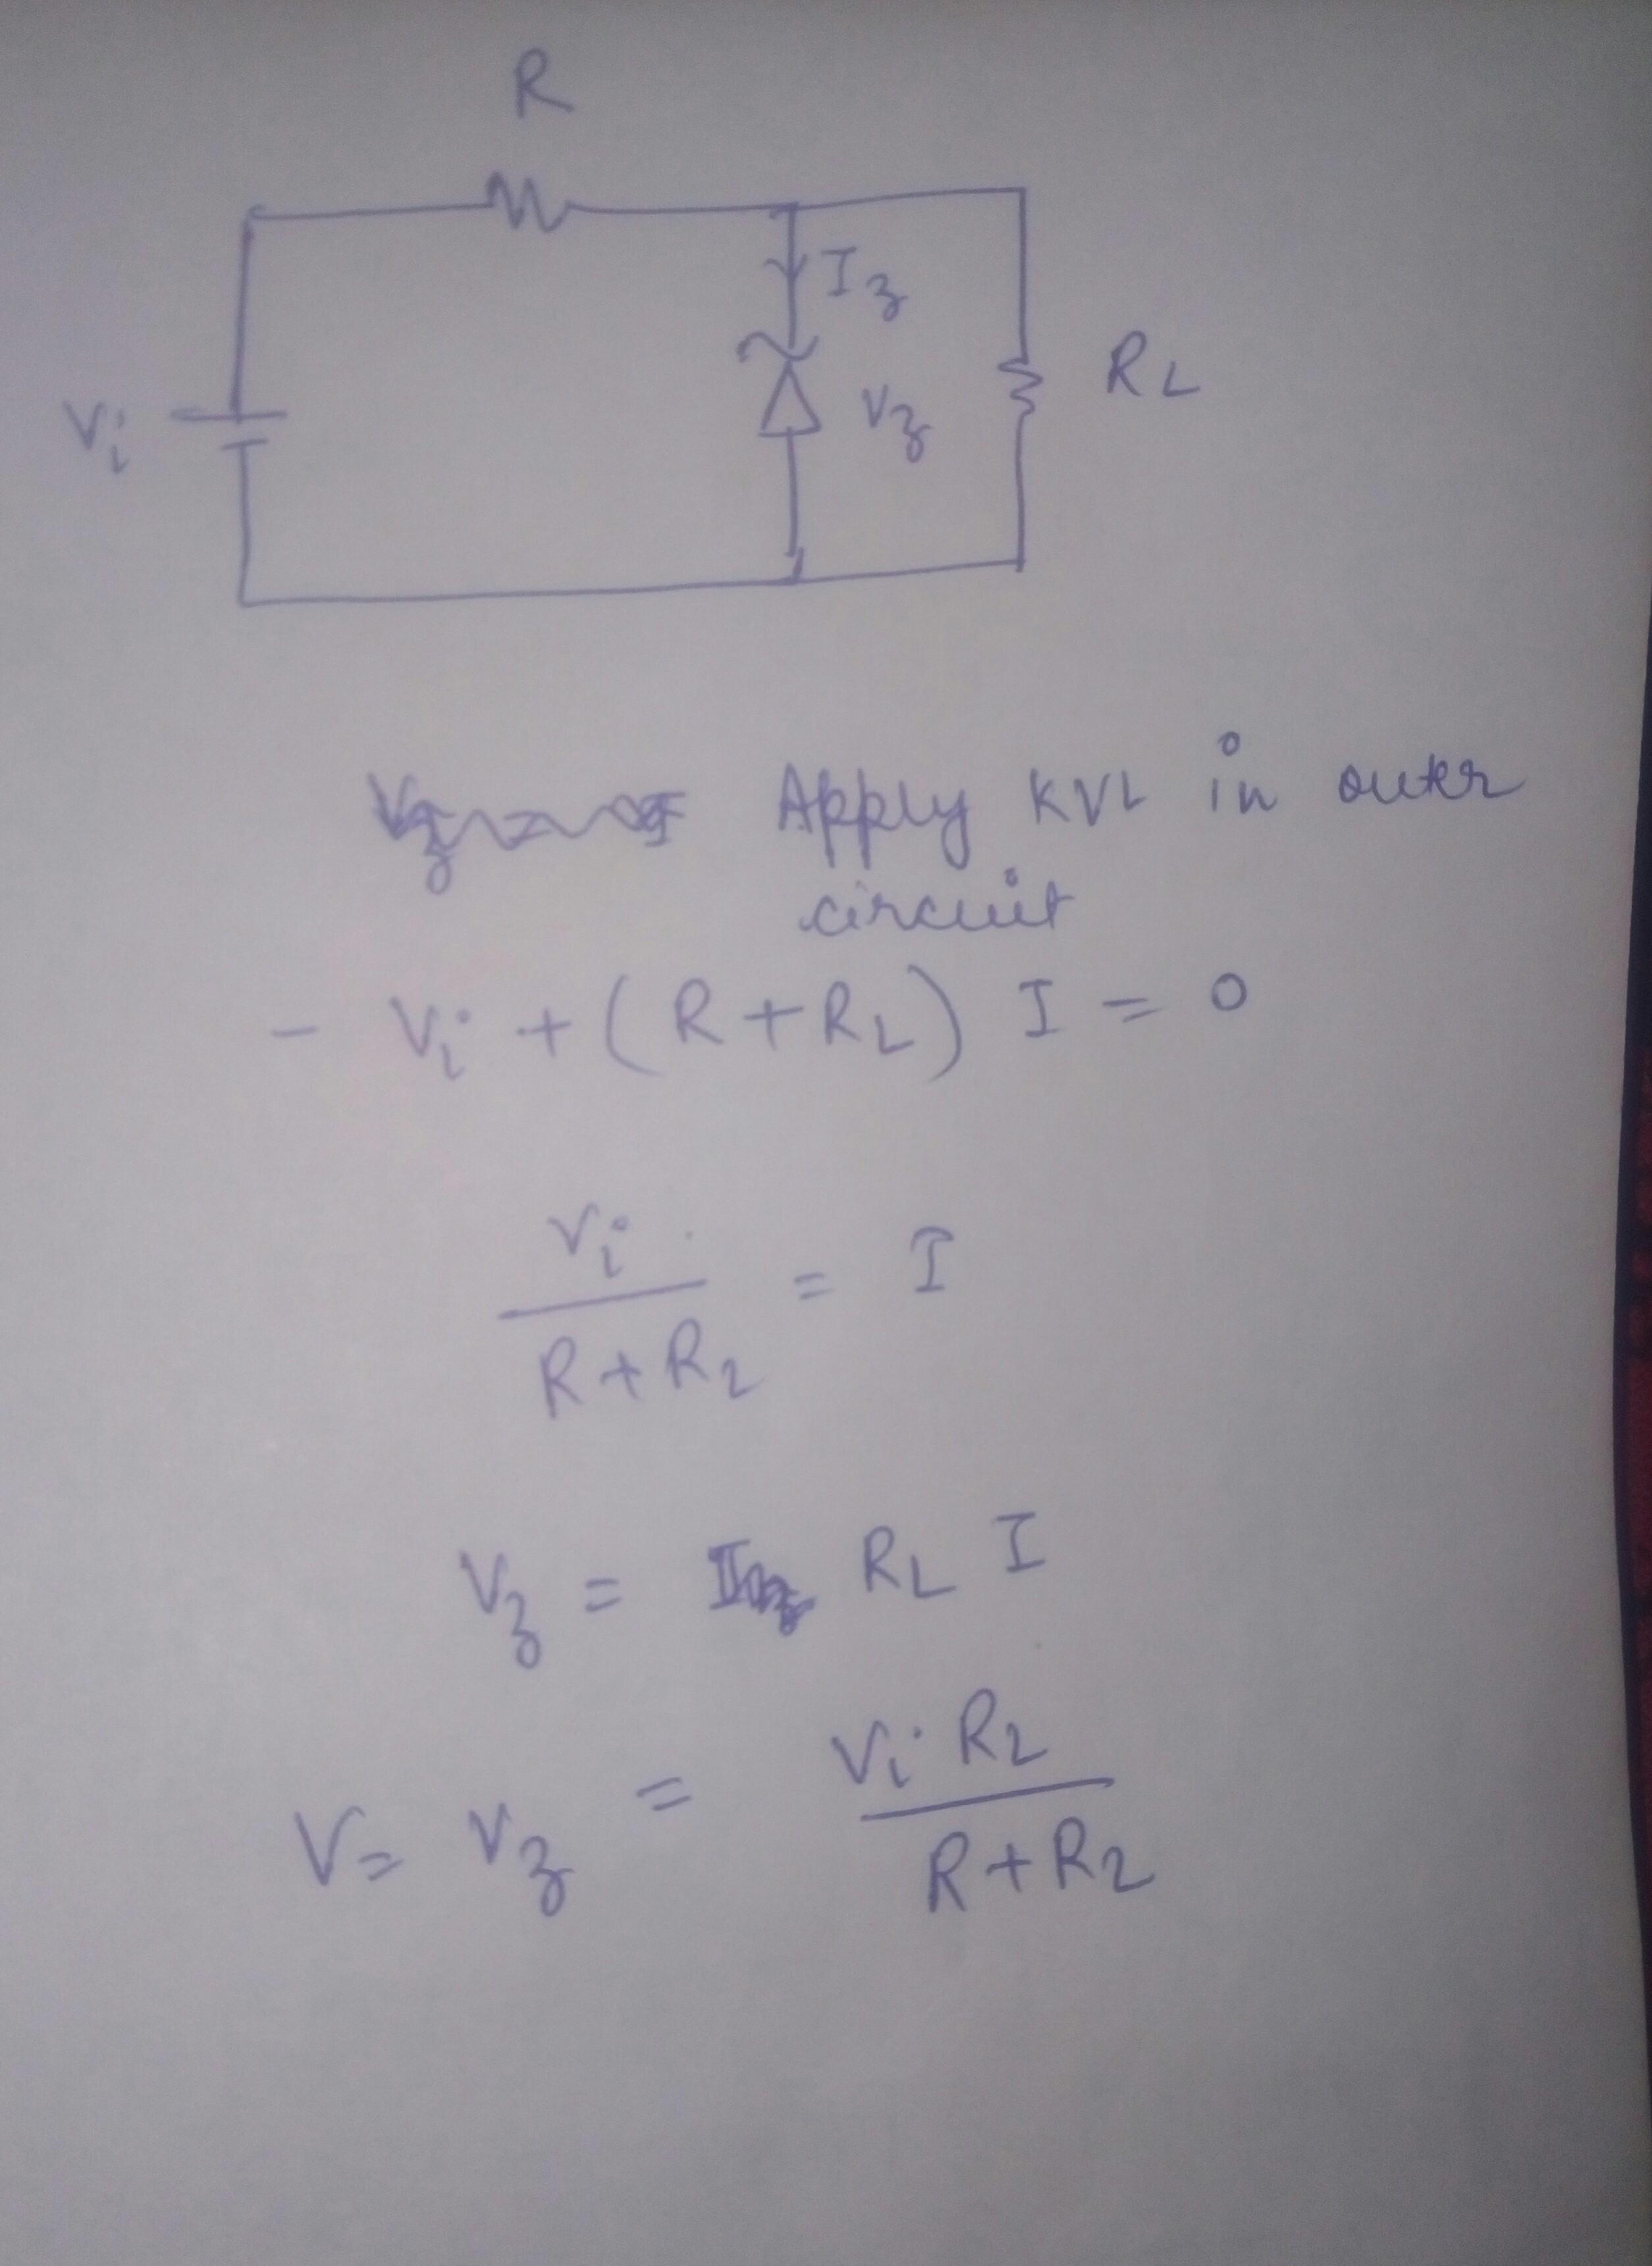 R
I_z
V_i
V_z
R_L
Apply KVL in outer
circuit
- V_i + (R + R_L) I = 0
V_i
/ R + R_L = I
V_z = R_L I
V = V_z = V_i R_L
/ R + R_L